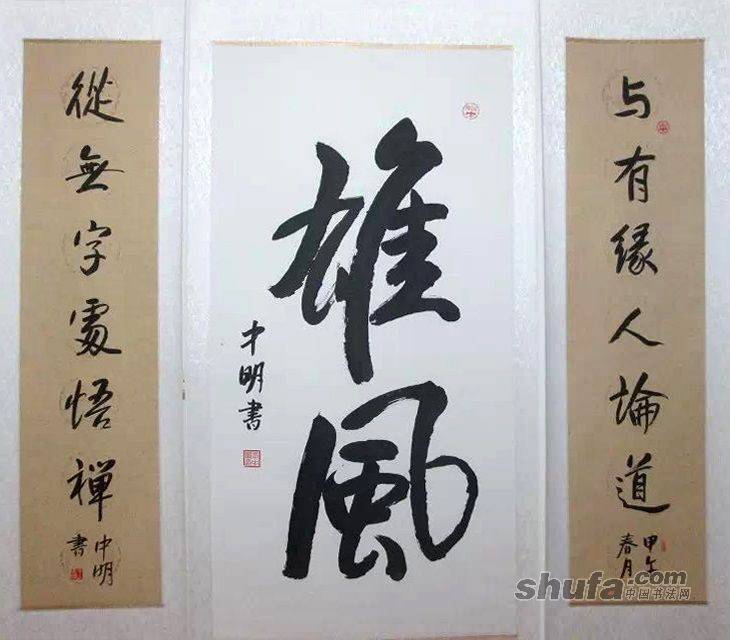 与有緣人論道
甲午
春月
雄風
中明書
從無字處悟禪
中明
書
shufa.com
中国书法网